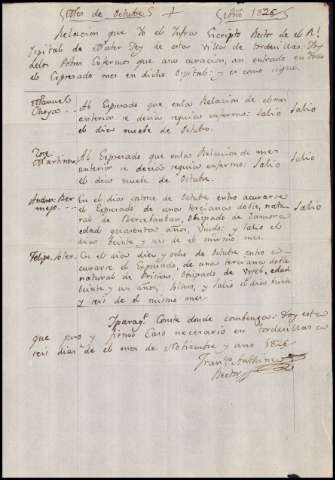 Mes de Octubre + Año 1826
Relacion que Yo el Infras Cripto Rector de el Rl
Ospital de Mater Dey de estas Villas de Tordecillas: Doy
delos Pobres Enfermos que asu curacion, an entrado en todo
el Espresado mes en dicho Ospital: y es como sigue
Manuel Al Espresado que enlas Relacion de el mes
anterior se decia, seguia enfermo: Salio Salio
el dias nuebe de Octubre.
Jose
Martines Al Espresado que enlas Relacion de mes
anterior se decia seguia enfermo: Salio Salio
el dias nuebe de Octubre.
Andres Ber En el dias catorce de Octubre entro acurarse
mejo el Espresado de unas tercianas dobles, natu
ral de Obispado de Zamora
edad quarentas años, Viudo, y Salio el Salio
dias Veinte y seis de el mismo mes.
Felipe Soler En el dias diez y ocho de Octubre entro a
curarse el Espresado, de unas tercianas dobles
natural de Obispado de edad
Veinte y un años, Soltero, y Salio el dias Veinte
y seis de el mismo mes.
Yparaqe Conste donde combenga: Doy esta
que Juro y firmo Caso necesario en Tordecillas a
seis dias de el mes de Nobiembre y año 1826
Frano
Rector